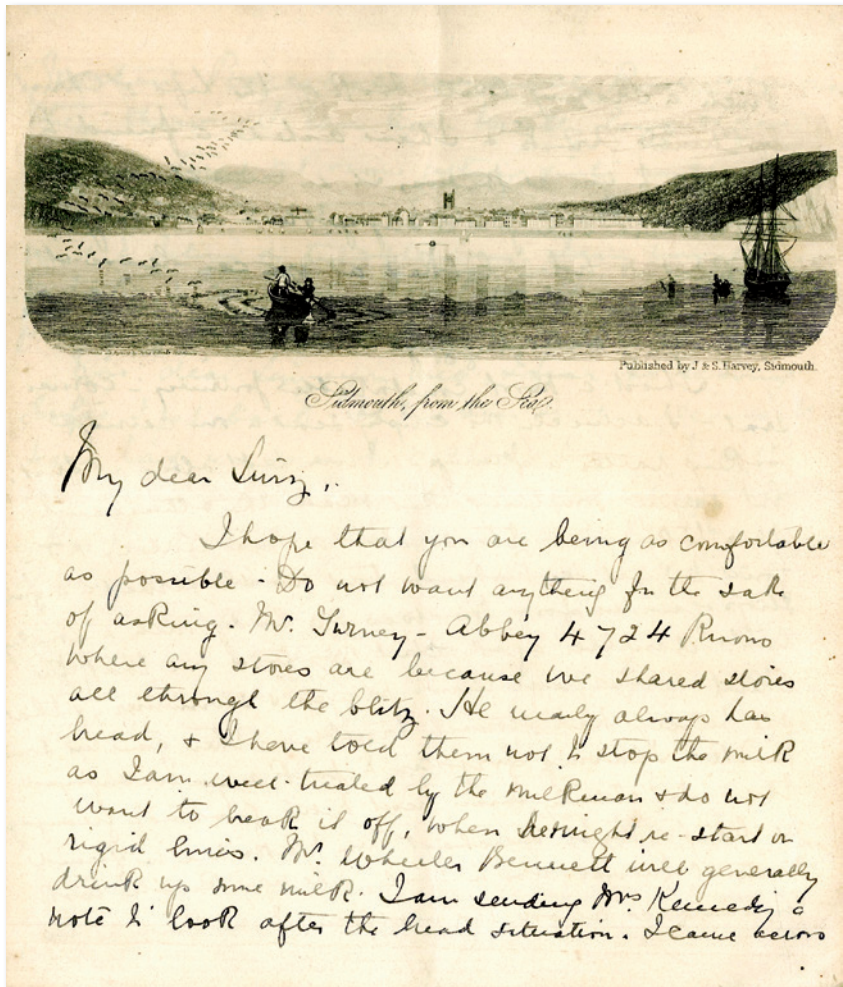 Published by J & S. Harvey, Sidmouth.
Sidmouth, from the Sea.
My dear
I hope that you are being as comfortable
as possible - Do not want anything for the sake
of asking. Mr. Gurney - Abbey 4724 knows
where any stores are because we shared stores
all through the blitz. He nearly always has
bread, & I have told them not to stop the milk
as I am well-treated by the milkman & do not
want to break it off, when he might re-start on
rigid lines. Mr. Wheeler Bennett will generally
drink up some milk. I am sending Mrs Kennedy a
note to look after the bread situation. I came across